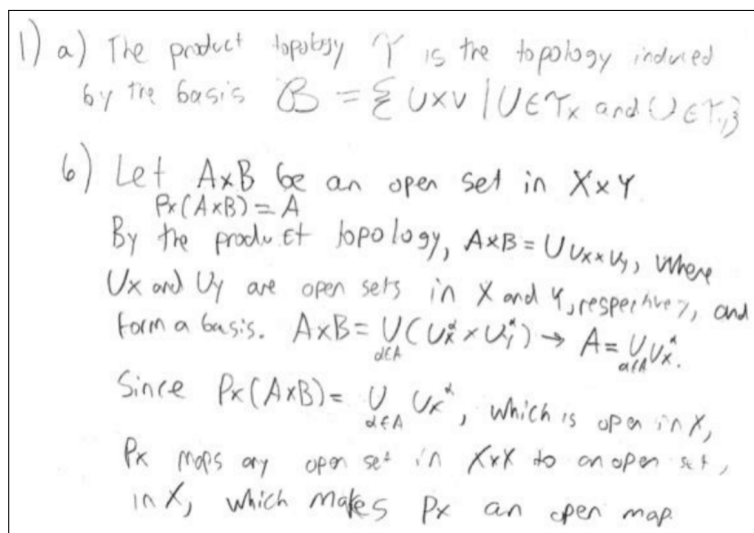 1) a) The product topology τ is the topology induced
by the basis B = { U×V | U ∈ τx and V ∈ τy }
b) Let A×B be an open set in X×Y
Px(A×B) = A
By the product topology, A×B = ∪ Ux×Uy, where
Ux and Uy are open sets in X and Y, respectively, and
form a basis. A×B = ∪ (Ux^α × Uy^α) → A = ∪ Ux^α.
α∈A α∈A
Since Px(A×B) = ∪ Ux^α, which is open in X,
α∈A
Px maps any open set in X×X to an open set,
in X, which makes Px an open map